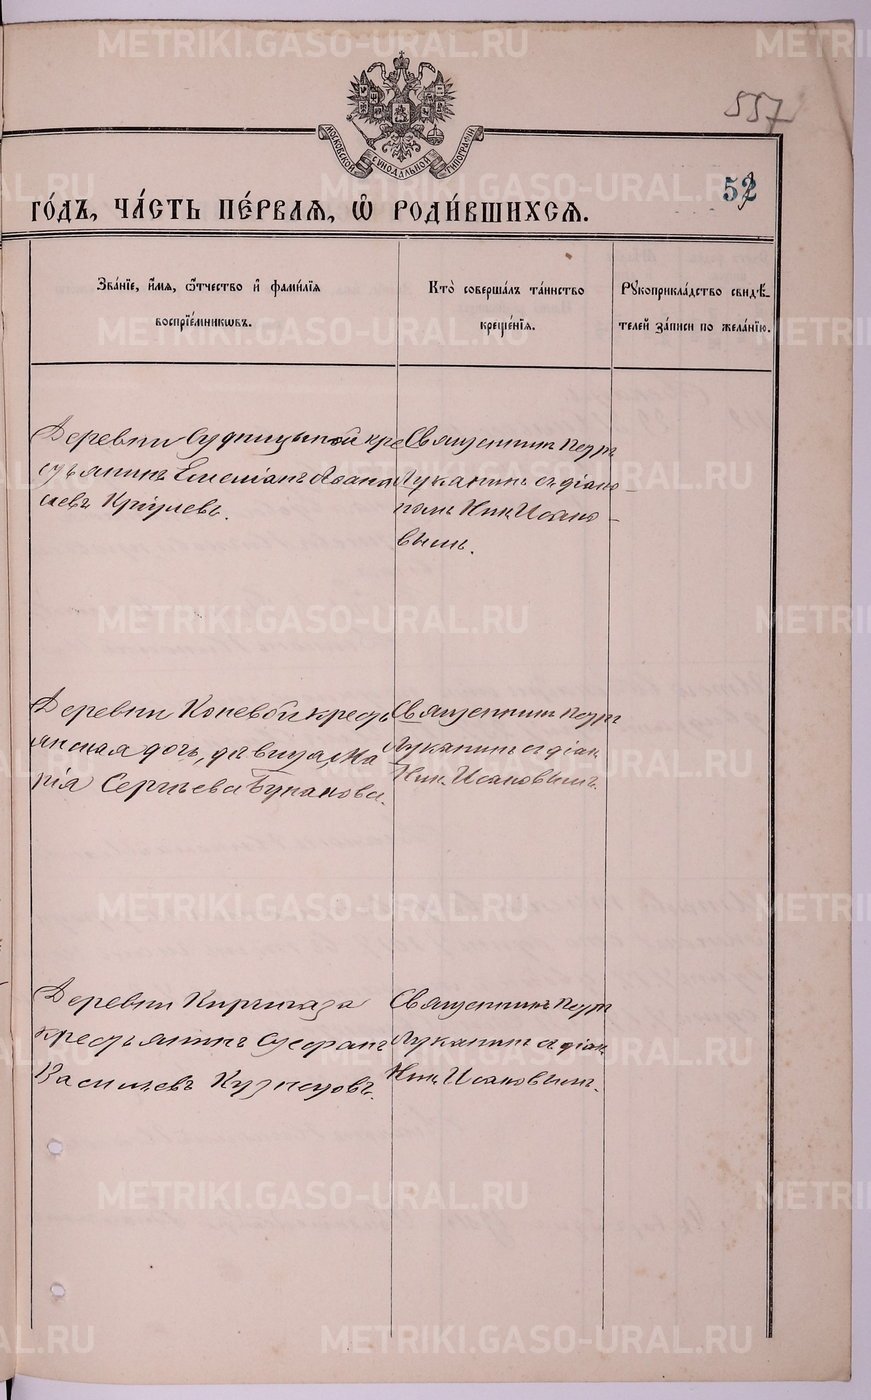 557
МОСКОВСКОЙ СѴНОДАЛЬНОЙ ТИПОГРАФІИ
52
ГО́ДЪ, ЧА́СТЬ ПЕ́РВАѦ, Ѡ҆ РОДИ́ВШИХСѦ.
Зва́нїе, и҆́мѧ, ѻ҆́тчество и҆ фами́лїѧ
воспрїе́мникѡвъ.
Кто̀ соверша́лъ та́инство
креще́нїѧ.
Рꙋкоприкла́дство свидѣ́-
телей за́писи по жела́нїю.
Деревни Судницыной кре
стьянинъ Емеліанъ Аѳана
сіевъ Кріулевъ.
Священникъ Петръ
Луканинъ съ діако-
номъ Ник. Исако-
вымъ.
Деревни Коневой кресть
янская дочь, дѣвица, Ма
рія Сергѣева Буканова.
Священникъ Петръ
Луканинъ съ діак.
Ник. Исаковымъ.
Деревни Киргигаза
крестьянинъ Стефанъ
Васильевъ Кузнецовъ.
Священникъ Петръ
Луканинъ съ діак.
Ник. Исаковымъ.
METRIKI.GASO-URAL.RU